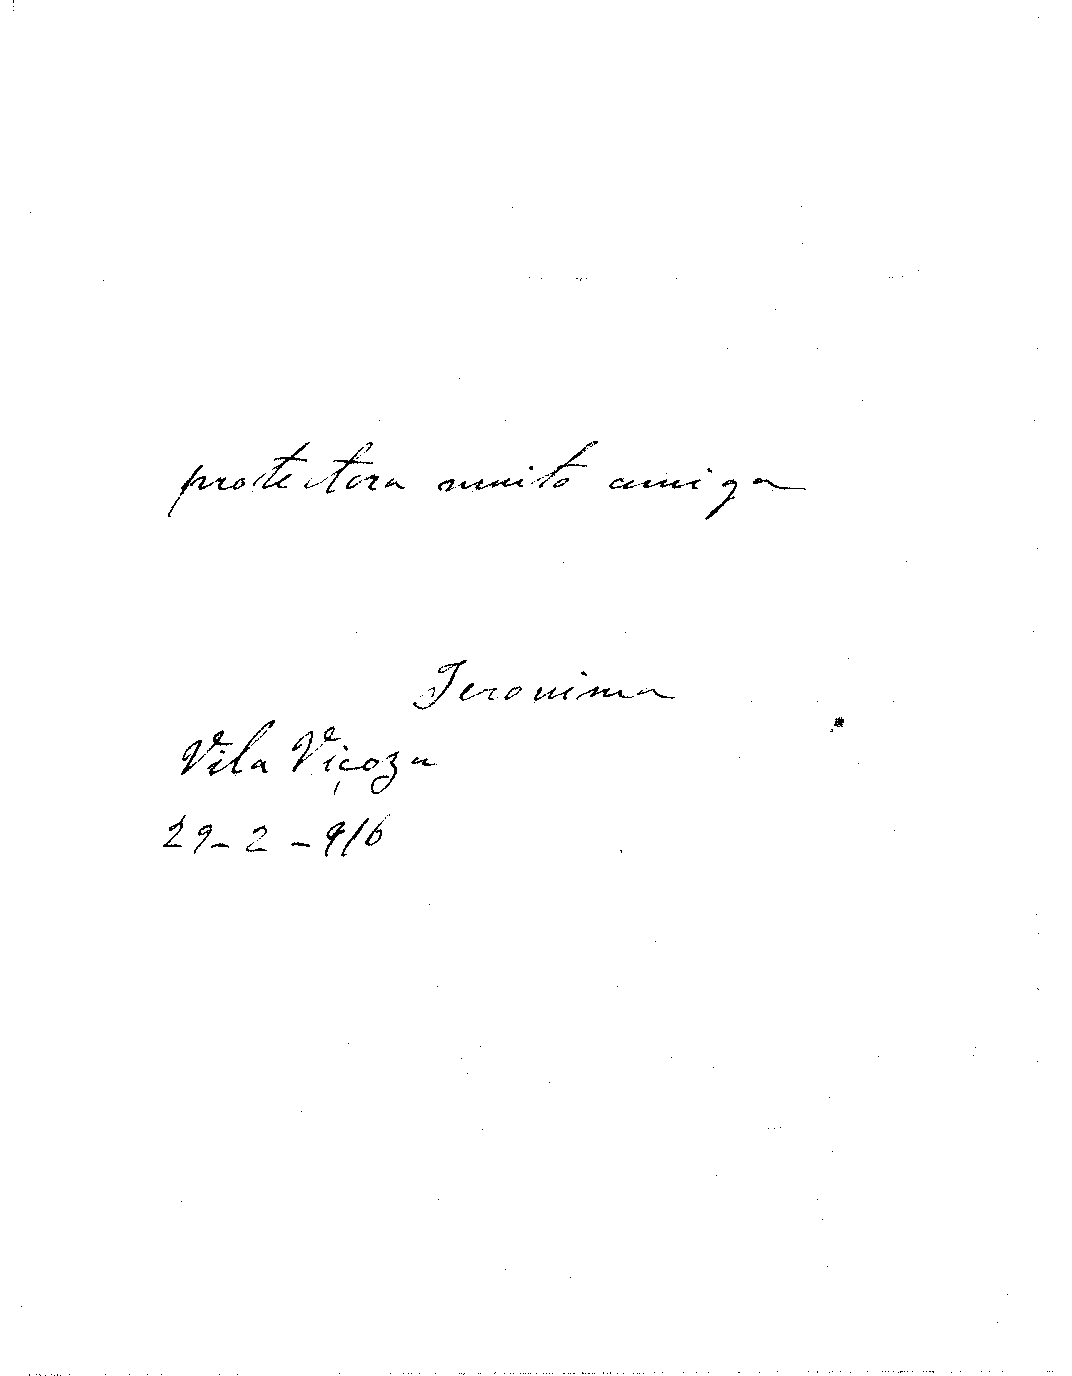 protectora muito amiga
Jeronima
Vila Viçoza
29-2-916